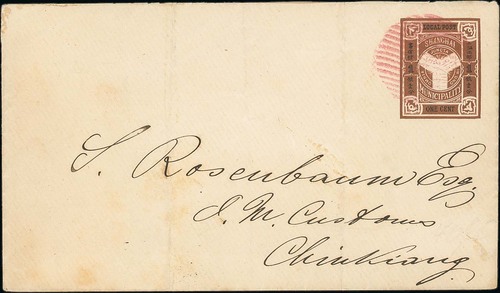 LOCAL POST
SHANGHAI
MUNICIPALITY
ONE CENT
S. Rosenbaum Esq.
I. M. Customs
ChinKiang